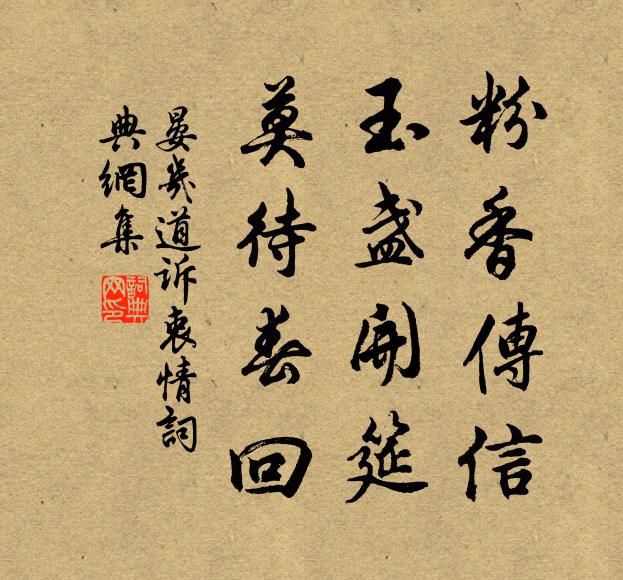 粉香傳信
玉盞開筵
莫待春回
晏幾道訴衷情詞
典網集
詞典网印